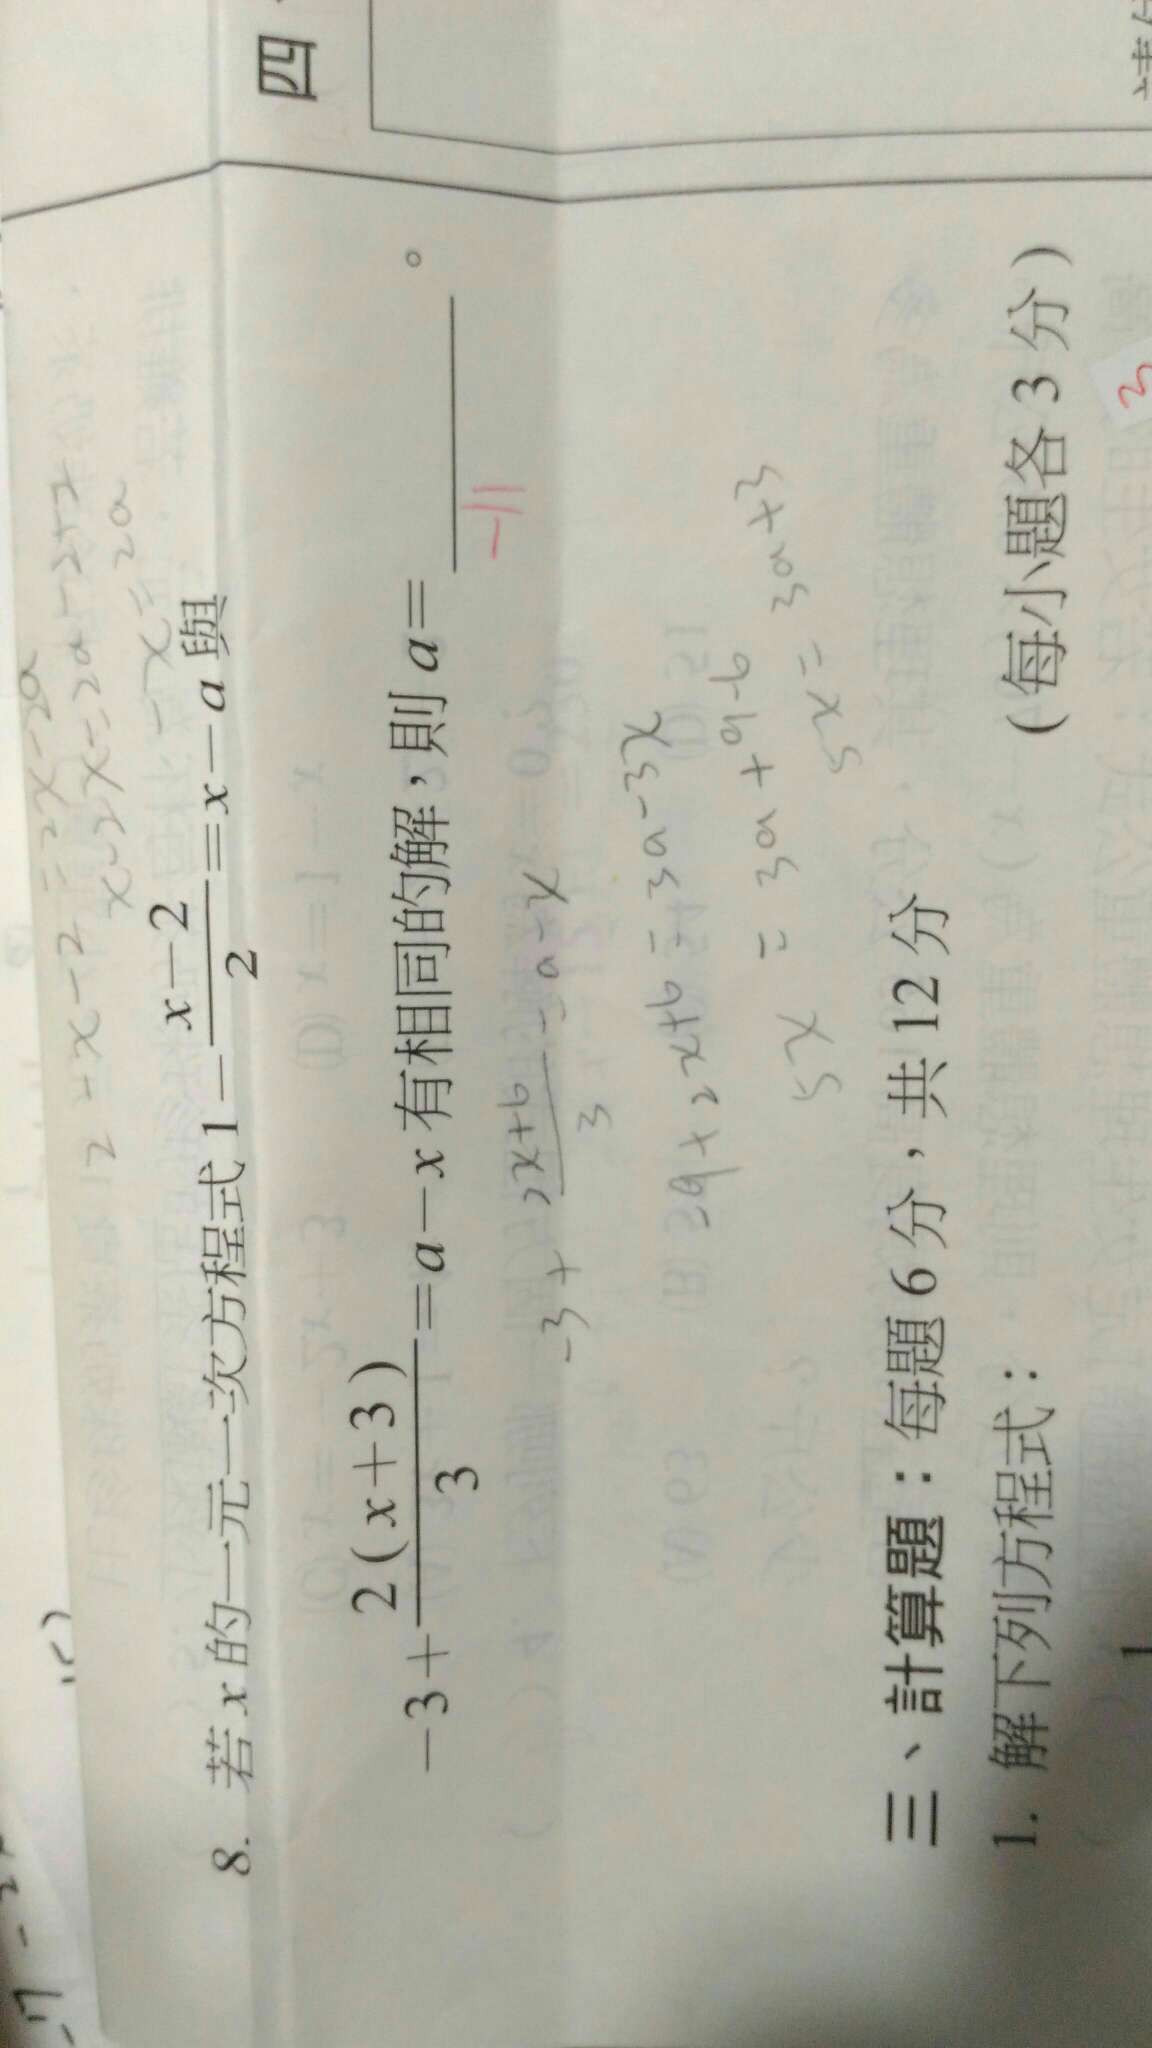 四
8. 若x的一元一次方程式 1−\frac{x−2}{2}=x−a 與
−3+\frac{2(x+3)}{3}=a−x 有相同的解，則 a=______。
-11
-3+\frac{2x+6}{3}=a-x
-9+2x+6=3a-3x
5x=3a+9-6
5x=3a+3
三、計算題：每題6分，共12分
1. 解下列方程式：（每小題各3分）
3